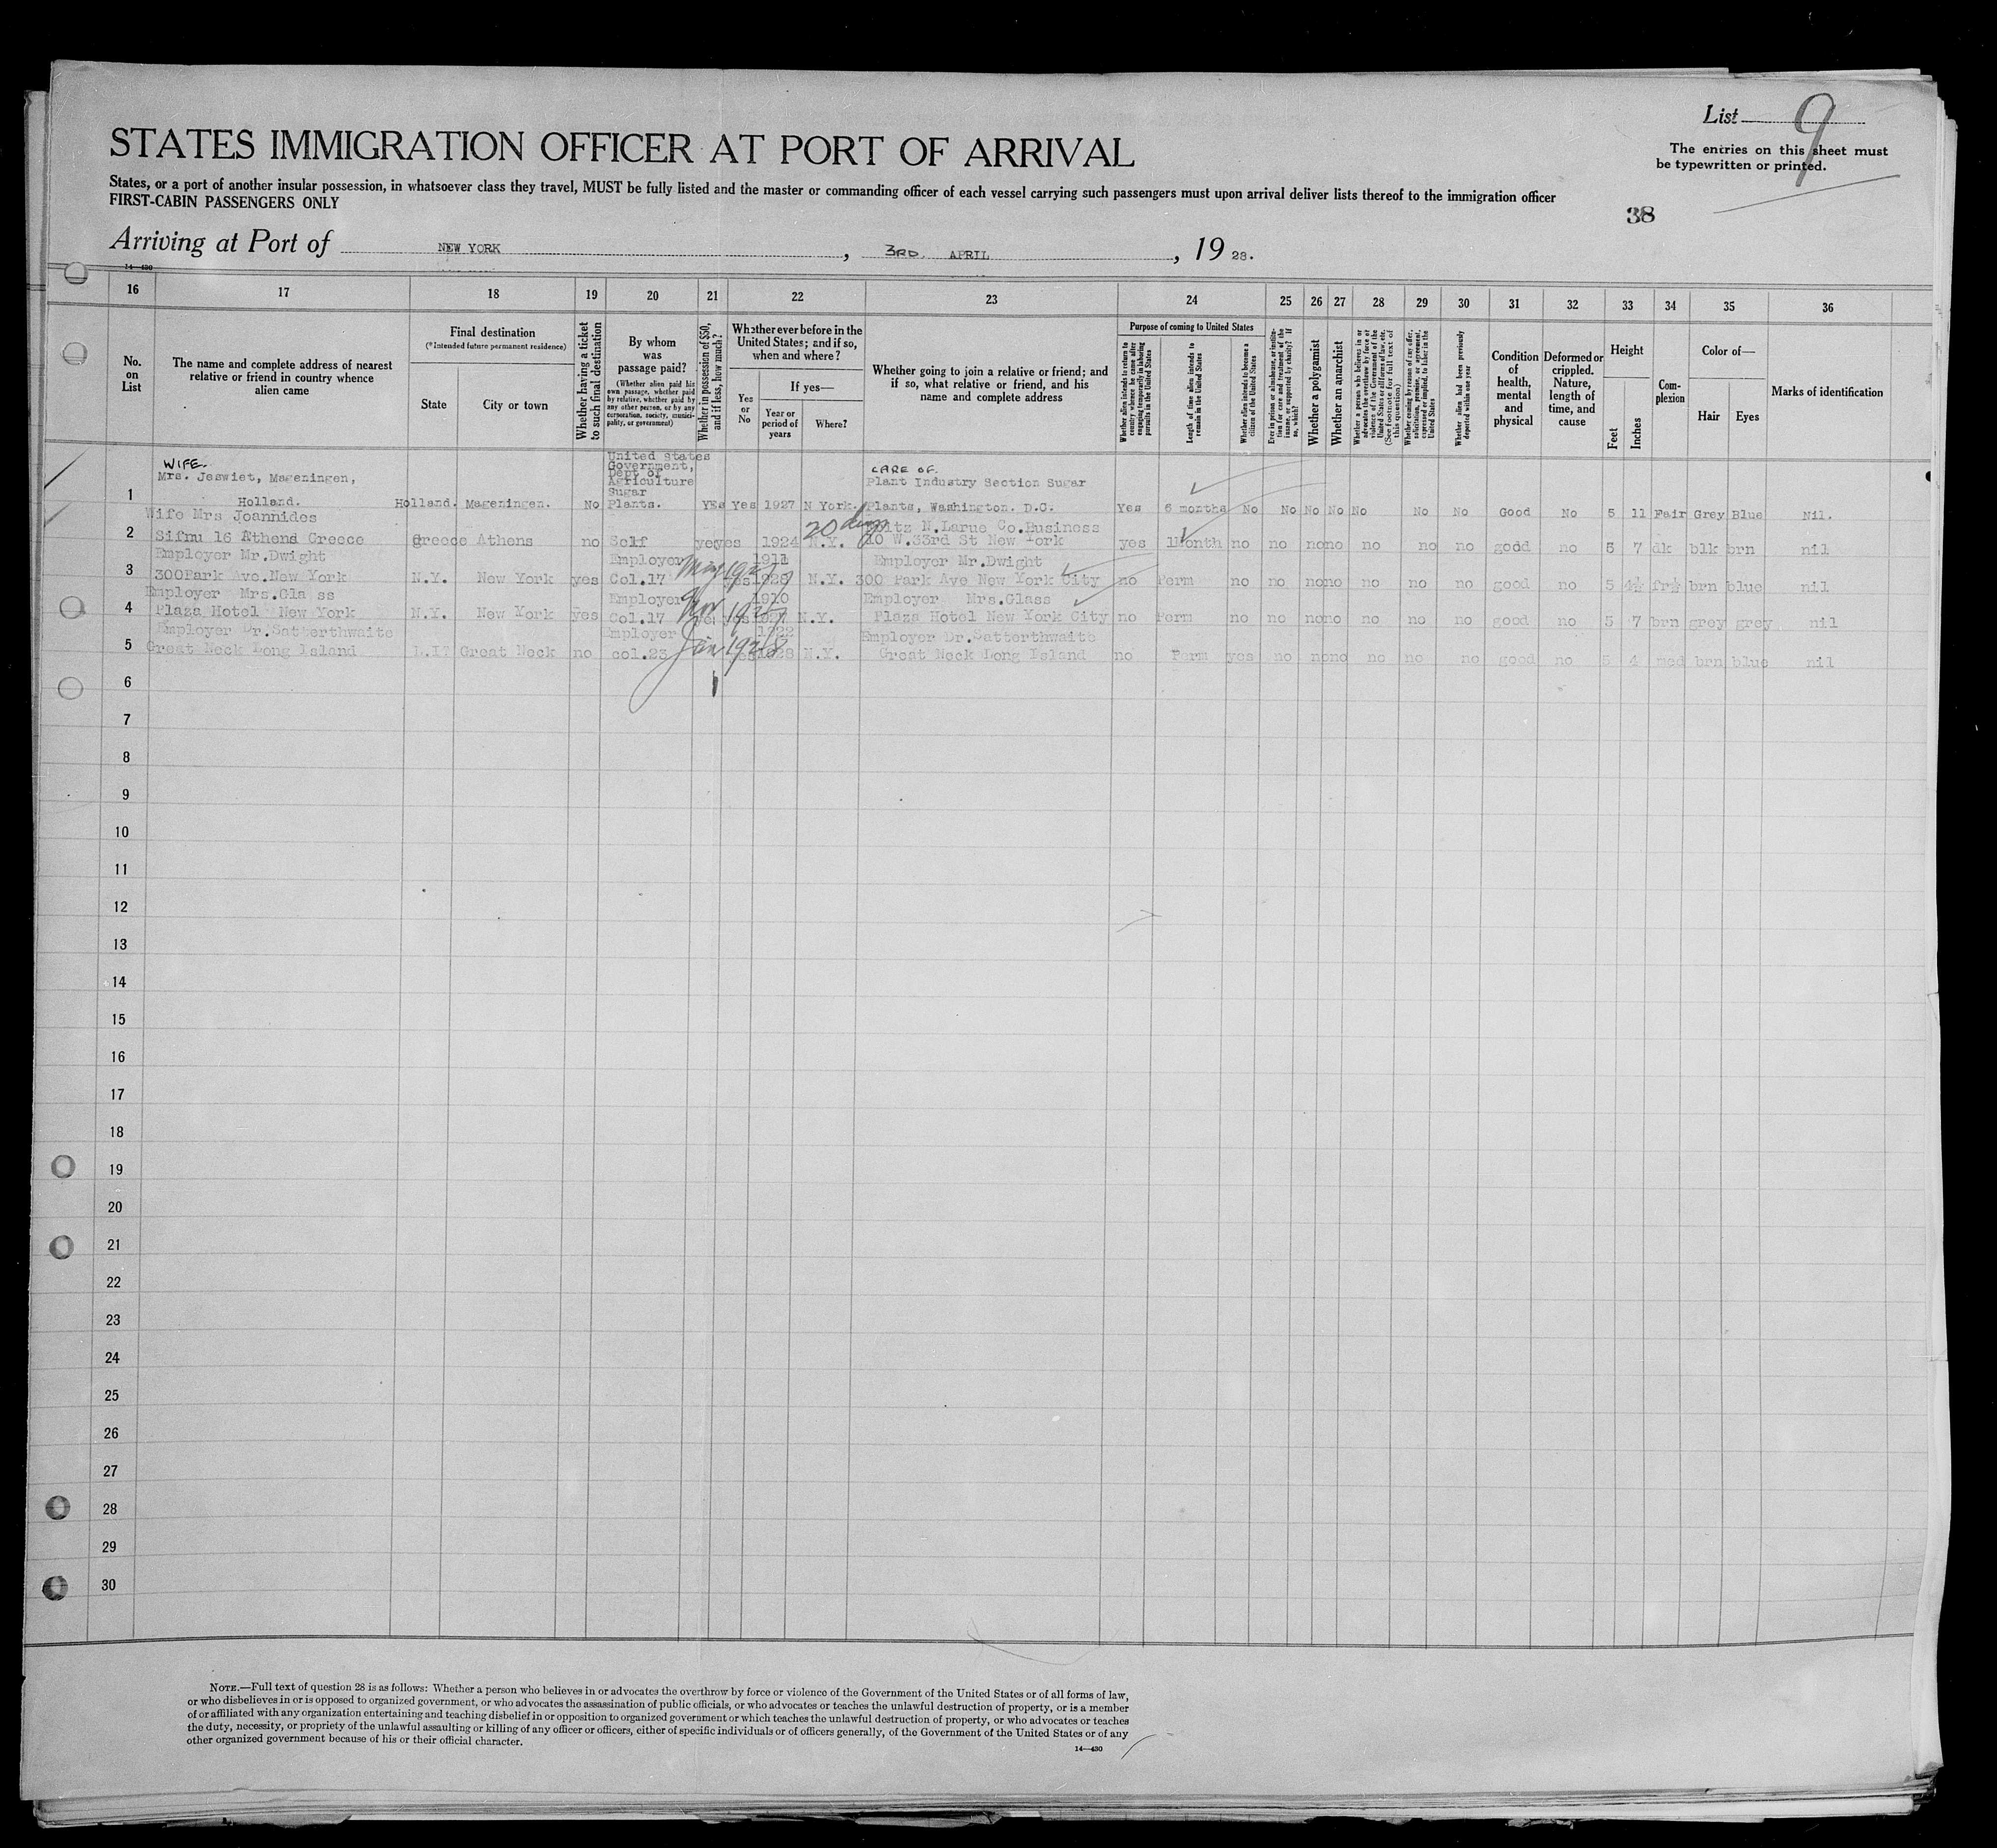 List 9
The entries on this sheet must
be typewritten or printed.
STATES IMMIGRATION OFFICER AT PORT OF ARRIVAL
States, or a port of another insular possession, in whatsoever class they travel, MUST be fully listed and the master or commanding officer of each vessel carrying such passengers must upon arrival deliver lists thereof to the immigration officer
FIRST-CABIN PASSENGERS ONLY
38
Arriving at Port of NEW YORK, 3RD. APRIL, 19 28.
14—430
16 17 18 19 20 21 22 23 24 25 26 27 28 29 30 31 32 33 34 35 36
No. on List
The name and complete address of nearest relative or friend in country whence alien came
Final destination
(*Intended future permanent residence)
State
City or town
Whether having a ticket to such final destination
By whom was passage paid?
(Whether alien paid his own passage, whether paid by relative, whether paid by any other person, or by any corporation, society, municipality, or government)
Whether in possession of $50, and if less, how much?
Whether ever before in the United States; and if so, when and where?
Yes or No
If yes—
Year or period of years
Where?
Whether going to join a relative or friend; and if so, what relative or friend, and his name and complete address
Purpose of coming to United States
Whether alien intends to return to country whence he came after engaging temporarily in laboring pursuits in the United States
Length of time alien intends to remain in the United States
Whether alien intends to become a citizen of the United States
Ever in prison or almshouse, or institution for care and treatment of the insane, or supported by charity? If so, which?
Whether a polygamist
Whether an anarchist
Whether a person who believes in or advocates the overthrow by force or violence of the Government of the United States or all forms of law, etc. (See footnote for full text of this question)
Whether coming by reason of any offer, solicitation, promise, or agreement, expressed or implied, to labor in the United States
Whether alien had been previously deported within one year
Condition of health, mental and physical
Deformed or crippled. Nature, length of time, and cause
Height
Feet
Inches
Complexion
Color of—
Hair
Eyes
Marks of identification
1 WIFE. Mrs. Jeswiet, Mageningen, Holland. Holland. Mageningen. No United States Government, Dept of Agriculture Sugar Plants. YEs Yes 1927 N York. CARE OF. Plant Industry Section Sugar Plants, Washington. D.C. Yes 6 months No No No No No No No Good No 5 11 Fair Grey Blue Nil.
2 Wife Mrs Joannides Sifnu 16 Athens Greece Greece Athens no Self yes yes 1924 N.Y. 20 days N.Larue Co.Business 10 W.33rd St New York yes 1Month no no no no no no no godd no 5 7 dk blk brn nil
3 Employer Mr.Dwight 300Park Ave.New York N.Y. New York yes Employer Col.17 May 1927 yes 1911 1928 N.Y. Employer Mr.Dwight 300 Park Ave New York City no Perm no no no no no no no good no 5 4½ brn blue nil
4 Employer Mrs.Gla ss Plaza Hotel New York N.Y. New York yes Employer Col.17 1927 yes 1910 N.Y. Employer Mrs.Glass Plaza Hotel New York City no Perm no no no no no no no good no 5 7 brn grey grey nil
5 Employer Dr.Satterthwaite Great Neck Long Island L.I Great Neck no Employer col.23 Jan 1928 1922 1928 N.Y. Employer Dr.Satterthwaite Great Neck Long Island no Perm yes no no no no no no good no 5 4 med brn blue nil
6
7
8
9
10
11
12
13
14
15
16
17
18
19
20
21
22
23
24
25
26
27
28
29
30
NOTE.—Full text of question 28 is as follows: Whether a person who believes in or advocates the overthrow by force or violence of the Government of the United States or of all forms of law,
or who disbelieves in or is opposed to organized government, or who advocates the assassination of public officials, or who advocates or teaches the unlawful destruction of property, or is a member
of or affiliated with any organization entertaining and teaching disbelief in or opposition to organized government or which teaches the unlawful destruction of property, or who advocates or teaches
the duty, necessity, or propriety of the unlawful assaulting or killing of any officer or officers, either of specific individuals or of officers generally, of the Government of the United States or of any
other organized government because of his or their official character.
14—430